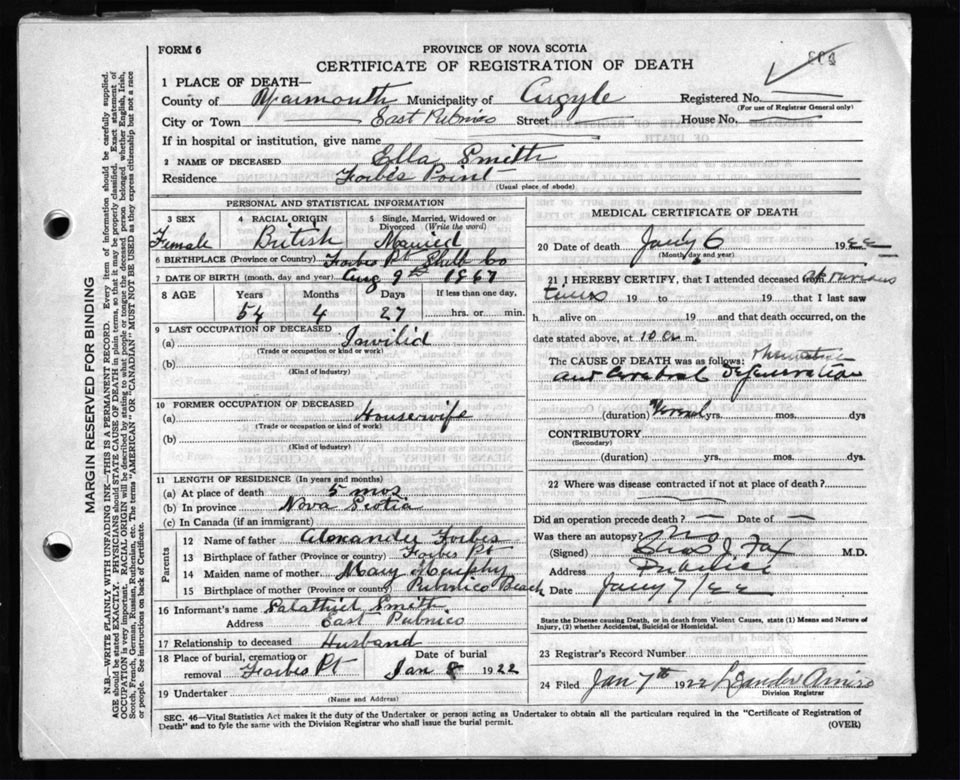 FORM 6
PROVINCE OF NOVA SCOTIA
CERTIFICATE OF REGISTRATION OF DEATH
1 PLACE OF DEATH—
County of Yarmouth Municipality of Argyle Registered No.
(For use of Registrar General only)
City or Town East Pubnico Street House No.
If in hospital or institution, give name
2 NAME OF DECEASED Ella Smith
Residence Forbes Point
(Usual place of abode)
PERSONAL AND STATISTICAL INFORMATION
3 SEX 4 RACIAL ORIGIN 5 Single, Married, Widowed or Divorced (Write the word)
Female British Married
6 BIRTHPLACE (Province or Country) Forbes Pt Shelb Co
7 DATE OF BIRTH (month, day, and year) Aug 9th 1867
8 AGE Years Months Days If less than one day,
54 4 27 hrs. or min.
9 LAST OCCUPATION OF DECEASED
(a) Invilid
(Trade or occupation or kind or work)
(b)
(Kind of industry)
10 FORMER OCCUPATION OF DECEASED
(a) Housewife
(Trade or occupation or kind of work)
(b)
(Kind of industry)
11 LENGTH OF RESIDENCE (In years and months)
(a) At place of death 5 mos
(b) In province Nova Scotia
(c) In Canada (if an immigrant)
Parents
12 Name of father Alexander Forbes
13 Birthplace of father (Province or country) Forbes Pt
14 Maiden name of mother Mary Murphy
15 Birthplace of mother (Province or country) Pubnico Beach
16 Informant's name Salathiel Smith
Address East Pubnico
17 Relationship to deceased Husband
18 Place of burial, cremation or removal Forbes Pt Date of burial Jan 8 1922
19 Undertaker
(Name and Address)
MEDICAL CERTIFICATE OF DEATH
20 Date of death Jany 6 1922
(Month, day and year)
21 I HEREBY CERTIFY, that I attended deceased from at various
times 19 to 19 that I last saw
h alive on 19 and that death occurred, on
date stated above, at 10 a m.
The CAUSE OF DEATH was as follows:
and Cerebral Degeneration
(duration) yrs. mos. dys
CONTRIBUTORY
(Secondary)
(duration) yrs. mos. dys.
22 Where was disease contracted if not at place of death?
Did an operation precede death? — Date of —
Was there an autopsy? No
(Signed) Chas J. Fox M.D.
Address Pubnico
Date Jany 7/22
State the Disease causing Death, or in death from Violent Causes, state (1) Means and Nature of
Injury, (2) whether Accidental, Suicidal or Homicidal.
23 Registrar's Record Number
24 Filed Jan 7th 1922 Leander Amiro
Division Registrar
SEC. 46—Vital Statistics Act makes it the duty of the Undertaker or person acting as Undertaker to obtain all the particulars required in the "Certificate of Registration of
Death" and to fyle the same with the Division Registrar who shall issue the burial permit.
(OVER)
MARGIN RESERVED FOR BINDING
N.B.—WRITE PLAINLY WITH UNFADING INK—THIS IS A PERMANENT RECORD. Every item of information should be carefully supplied.
AGE should be stated EXACTLY. PHYSICIANS should STATE CAUSE OF DEATH in plain terms, so that it may be properly classified. Exact statement of
OCCUPATION is very important. RACIAL ORIGIN will be described by stating to what people or tongue the deceased person belonged whether English, Irish,
Scotch, French, German, Russian, Ruthenian, etc. The terms "AMERICAN" or "CANADIAN" MUST NOT BE USED as they express citizenship but not a race
or people. See instructions on back of Certificate.